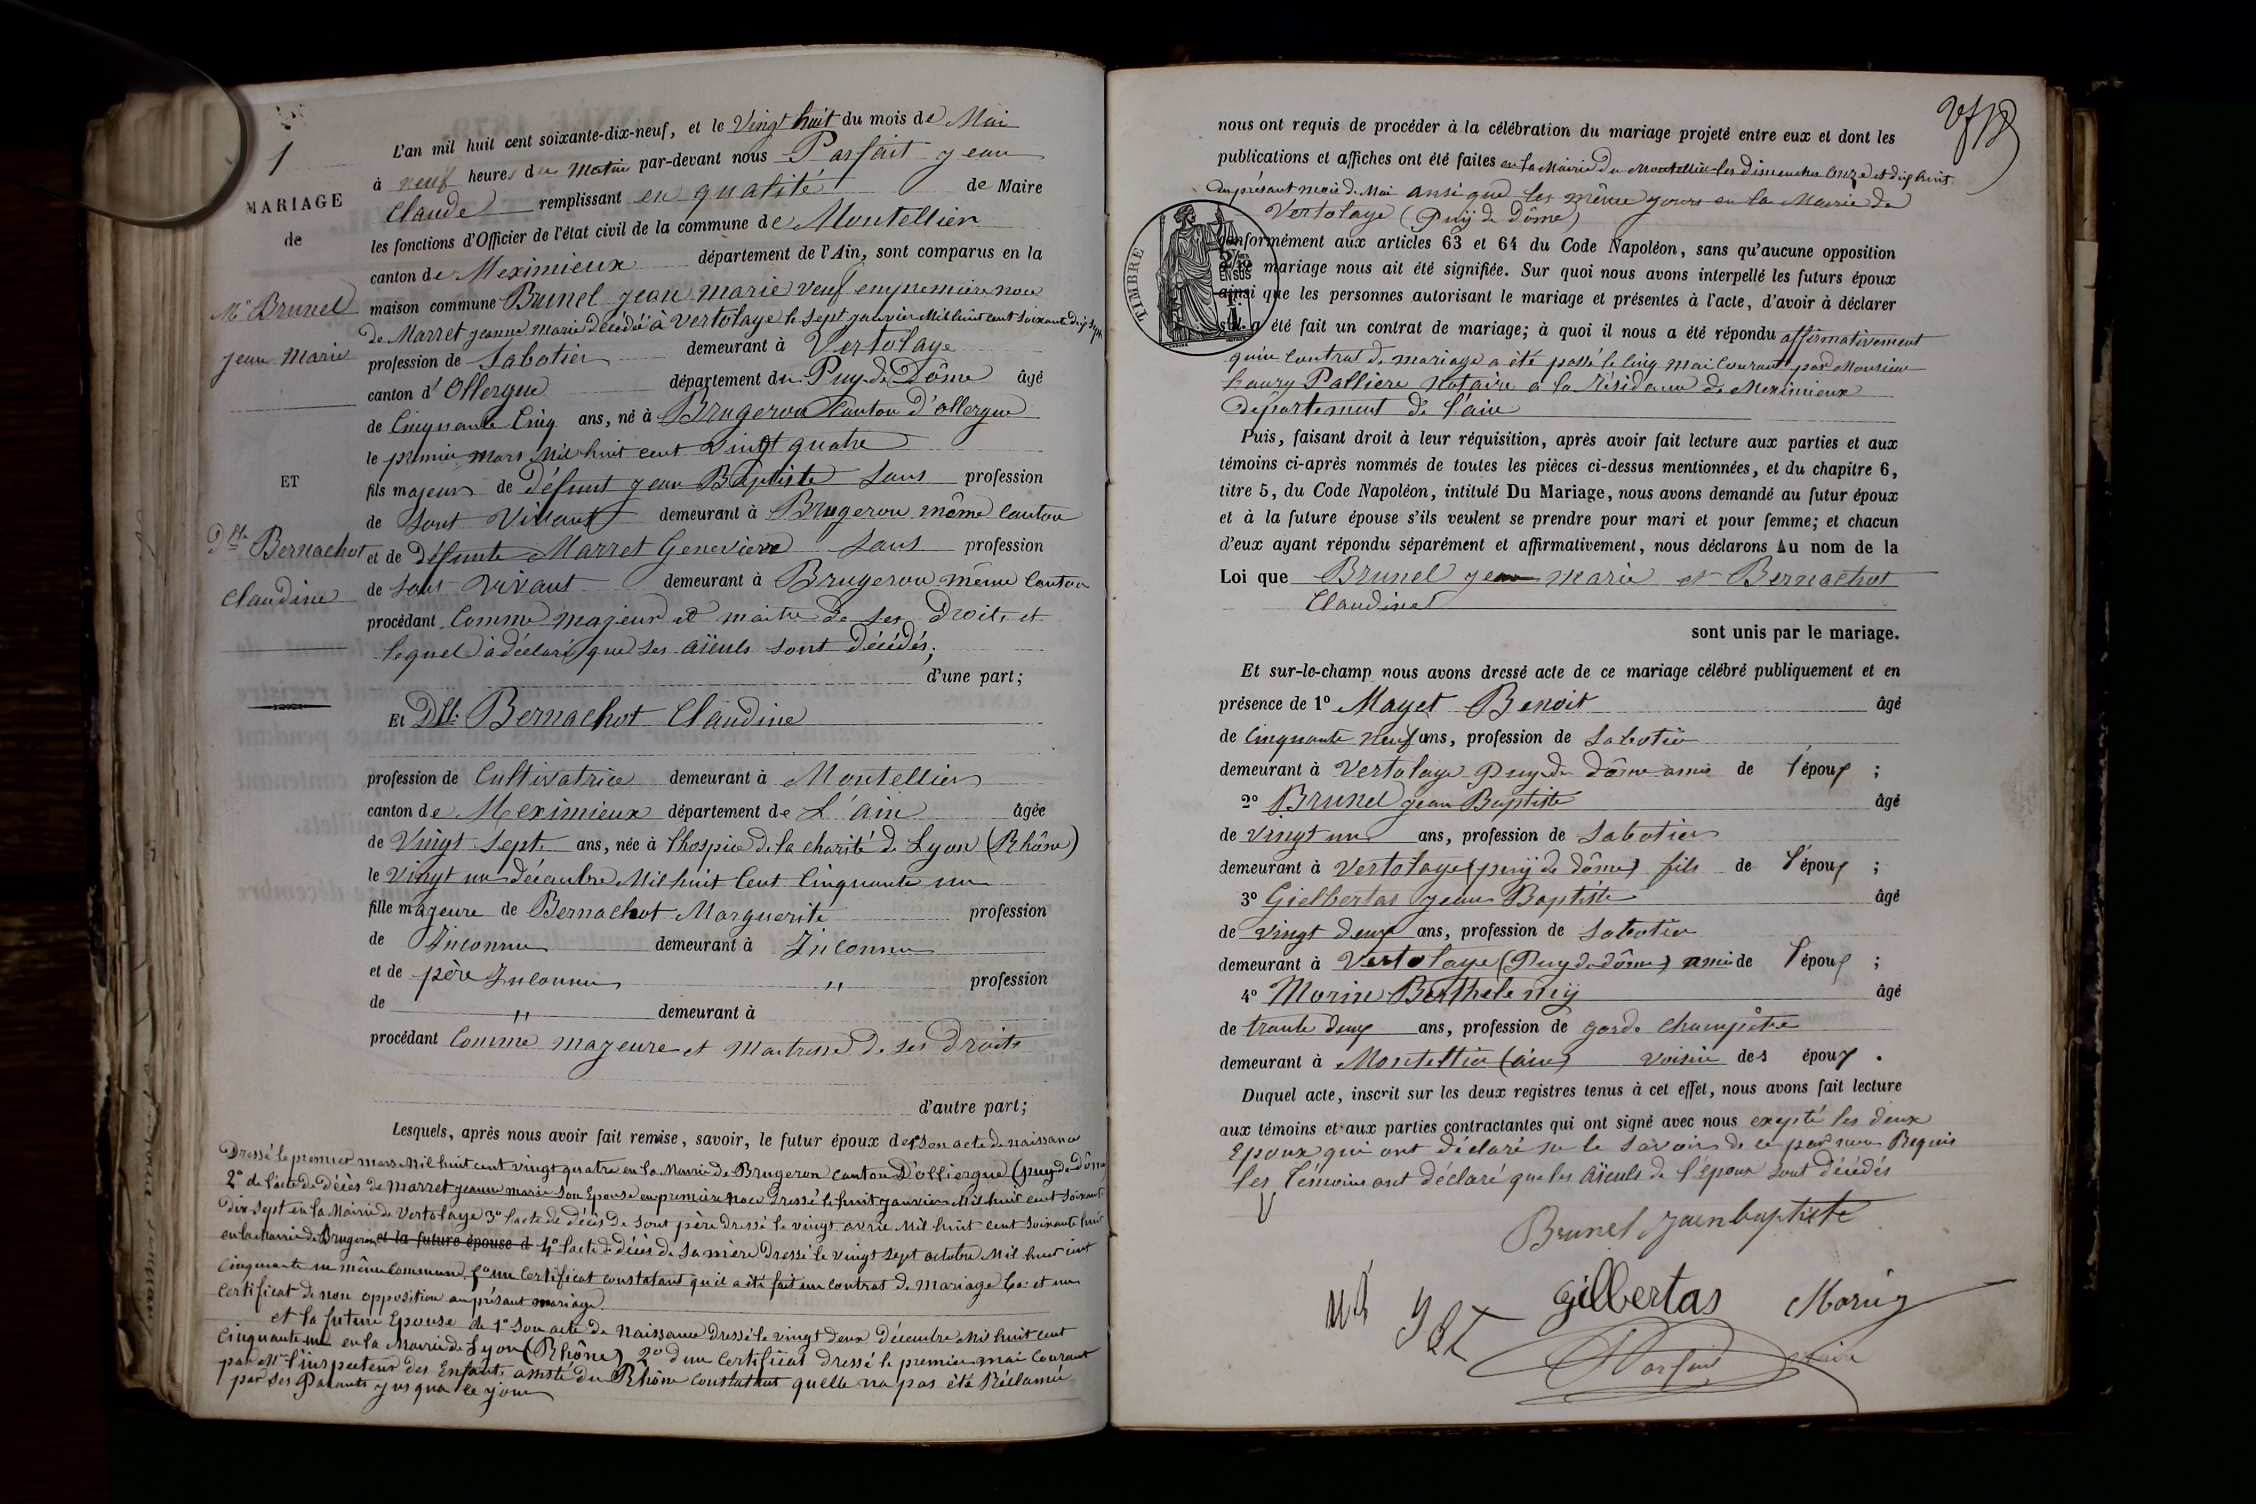 1
MARIAGE
de
Mr Brunel
jean Marie
ET
Dlle Bernachot
Claudine
L'an mil huit cent soixante-dix-neuf, et le Vingt huit du mois de Mai
à neuf heures du Matin par-devant nous Parfait jean
Claude remplissant en qualité de Maire
les fonctions d'Officier de l'état civil de la commune de Montellier
canton de Meximieux département de l'Ain, sont comparus en la
maison commune Brunel jean marie veuf en premiere noce
de Marret jeanne marie décédée à Vertolaye le sept janvier Mil huit cent soixante dix sept
profession de Sabotier demeurant à Vertolaye
canton d'Ollergue département du Puy de Dôme âgé
de Cinquante Cinq ans, né à Brugeron Canton d'ollergue
le premier mars Mil huit cent vingt quatre
fils majeur de défunt jean Baptiste sans profession
de sont Vivant demeurant à Brugeron même Canton
et de défunte Marret Genevieve sans profession
de sont vivant demeurant à Brugeron même Canton
procédant Comme majeur et maitre de ses Droits et
lequel à déclaré que ses aïeuls sont décédés;
d'une part;
Et Dlle: Bernachot Claudine
profession de Cultivatrice demeurant à Montellier
canton de Meximieux département de L'ain âgée
de Vingt sept ans, née à l'hospice de la charité de Lyon (Rhône)
le Vingt un décembre Mil huit Cent Cinquante un
fille majeure de Bernachot Marguerite profession
de Inconnu demeurant à Inconnu
et de père Inconnu " profession
de " demeurant à
procédant Comme majeure et Maitresse de ses Droits
d'autre part;
Lesquels, après nous avoir fait remise, savoir, le futur époux de 1° son acte de naissance
Dressé le premier mars Mil huit cent vingt quatre en la Mairie de Brugeron Canton D'olliergue (puy de Dôme)
2° de l'acte de Décès de Marret jeanne marie son Epouse en premiere noce Dressé le huit janvier Mil huit cent soixante
Dix sept en la Mairie de Vertolaye 3° l'acte de décès de sont père dressé le vingt avril Mil huit cent soixante huit
en la Mairie de Brugeron et la future épouse d 4° l'acte de décès de sa mère Dressé le vingt sept octobre Mil huit cent
Cinquante un même Commune 5° un Certificat constatant qu'il a été fait un contrat de Mariage 6°: et un
Certificat de non opposition au présant mariage.
et la future Epouse de 1° son acte de Naissance Dressé le vingt deux Décembre Mil huit cent
Cinquante un en la Mairie de Lyon (Rhône) 2° d'un Certificat dressé le premier mai Courant
par Mr l'inspecteur des Enfants assisté du Rhône constatant quelle n'a pas été Réclamée
par ses Parants jusqu'a ce jour
nous ont requis de procéder à la célébration du mariage projeté entre eux et dont les
publications et affiches ont été faites en la Mairie du Montellier les dimenches Onze et dix huit
du présant mois de Mai ansi que les même jours en la Mairie de
Vertolaye (Puÿ de Dôme)
conformément aux articles 63 et 64 du Code Napoléon, sans qu'aucune opposition
mariage nous ait été signifiée. Sur quoi nous avons interpellé les futurs époux
ainsi que les personnes autorisant le mariage et présentes à l'acte, d'avoir à déclarer
s'il a été fait un contrat de mariage; à quoi il nous a été répondu affirmativement
qu'un Contrat de mariage a été passé le Cinq mai Courant par Monsieur
Palliere Notaire a la résidence de Meximieux
Département de l'ain
TIMBRE
2/10
EN SUS
Puis, faisant droit à leur réquisition, après avoir fait lecture aux parties et aux
témoins ci-après nommés de toutes les pièces ci-dessus mentionnées, et du chapitre 6,
titre 5, du Code Napoléon, intitulé Du Mariage, nous avons demandé au futur époux
et à la future épouse s'ils veulent se prendre pour mari et pour femme; et chacun
d'eux ayant répondu séparément et affirmativement, nous déclarons Au nom de la
Loi que Brunel jean marie et Bernachot
Claudine
sont unis par le mariage.
Et sur-le-champ nous avons dressé acte de ce mariage célébré publiquement et en
présence de 1° Mayet Benoit âgé
de Cinquante neuf ans, profession de Sabotier
demeurant à Vertolaye Puy de dôme amis de l'époux ;
2° Brunel jean Baptiste âgé
de vingt un ans, profession de Sabotier
demeurant à Vertolaye (puÿ de dôme) fils de l'époux ;
3° Gielbertas jean Baptiste âgé
de vingt deux ans, profession de Sabotier
demeurant à Vertolaye (Puy de dôme) amis de l'époux ;
4° Morin Barthelemÿ âgé
de trante deux ans, profession de garde champêtre
demeurant à Montellier (ain) voisin des époux .
Duquel acte, inscrit sur les deux registres tenus à cet effet, nous avons fait lecture
aux témoins et aux parties contractantes qui ont signé avec nous exepté les deux
Epoux qui ont déclaré ne le savoir de ce par nous Requis
les témoins ont déclaré que les aïeuls de l'époux sont décédés
Brunel jaenbaptiste
Gilbertas Morin
Parfait Maire